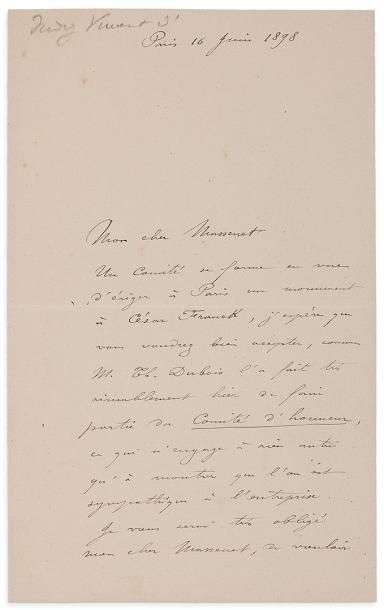 Indy Vincent d'
Paris 16 Juin 1898
Mon cher Massenet
Un Comité se forme en vue
d'ériger à Paris un monument
à César Franck, j'espère que
vous voudrez bien accepter, comme
M. Th. Dubois l'a fait très
aimablement hier de faire
partie du Comité d'honneur,
ce qui n'engage à rien autre
qu'à montrer que l'on est
sympathique à l'entreprise.
Je vous serai très obligé
mon cher Massenet, de vouloir